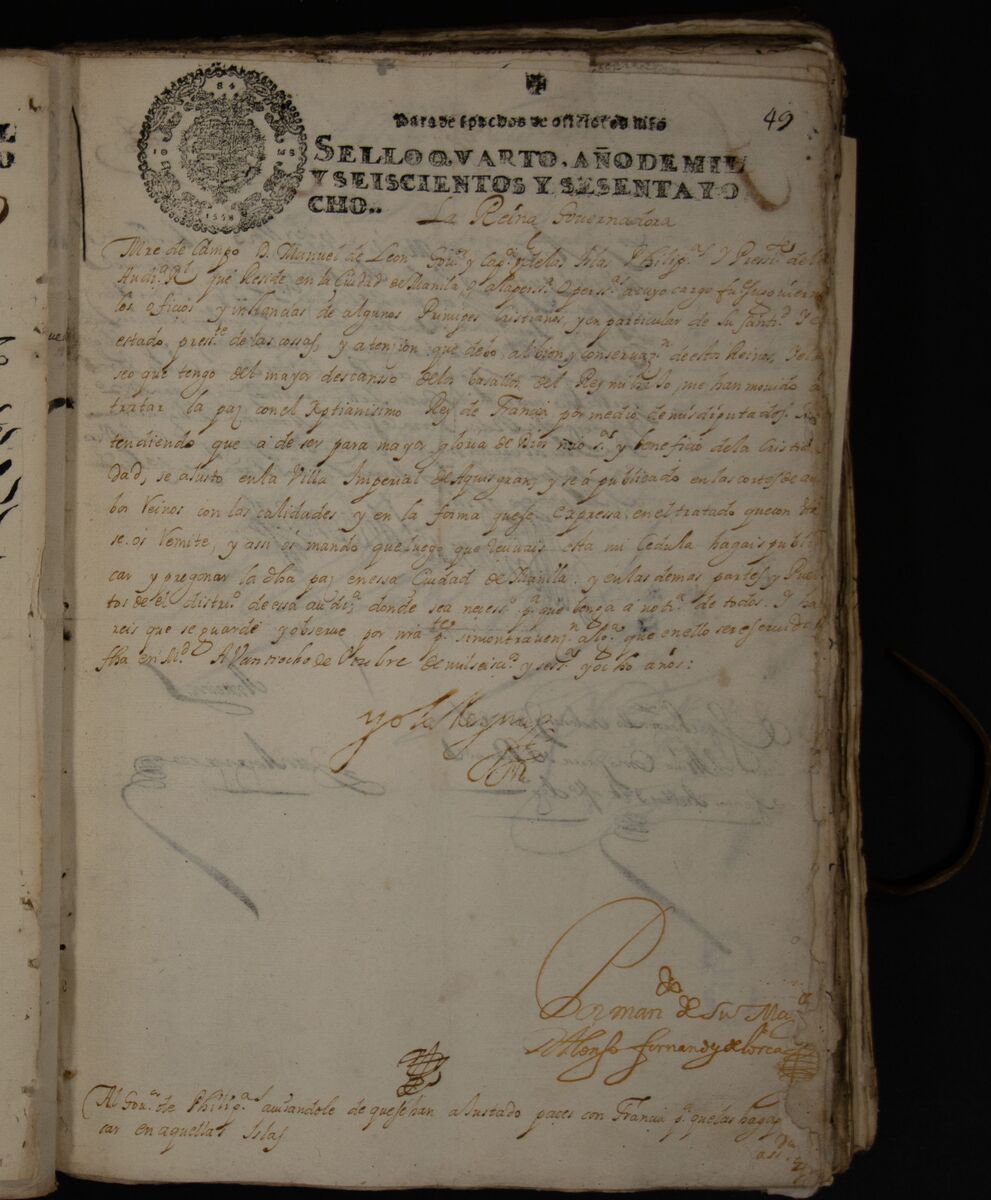 49
Para despachos de oficio dos mrs
SELLO QVARTO, AÑO DE MIL
Y SEISCIENTOS Y SESENTA Y O
CHO..
La Reina Governadora
Mre de Campo D. Manuel de Leon Gou.or y Cap.n g.l de las Islas Philip.as y Pressi.te de la
Audi.a R.l que Reside en la Ciudad de Manila, o a la perss.a o perss.as a cuyo cargo fu.e su gouierno
los oficios y instancias de algunos Prinçipes Cristianos, y en particular de Su Santi.d y el
estado press.te de las cossas, y atençion que debo al bien y conservaz.n de estos Reinos, y el de
seo que tengo del mayor descansso de los basallos del Rey mi hijo, me han movido a
tratar la paz con el Xptianisimo Rey de Francia por medio de mis diputados. En
tendiendo que a de ser para mayor gloria de Dios nro s.or y beneficio de la Cristian
dad, se ajusto en la Villa Imperial de Aquisgran, y se á publicado en las cortes de am
bos Reinos con las calidades y en la forma que se expressa en el tratado que con esta
se os Remite, y assi os mando que luego que Reciuais esta mi Cedula hagais publi
car y pregonar la dha paz en essa Ciudad de Manila y en las demas partes y Puer
tos de el distri.o de essa audi.a donde sea necess.o p.a que benga a noti.a de todos. Y ha
reis que se guarde y observe por nra p.te sin contravenz.n a lo que en ello se
fha en M.d A Vante ocho de Otubre de mil seisci.os y sess.ta y ocho años:
yo la Reyna
Por man.do de Su Mag.d
D Alonso fernandez de lorca
Al Gou.or de Philip.as auisandole de que se han ajustado paces con Francia p.a que las haga p
car en aquellas Islas